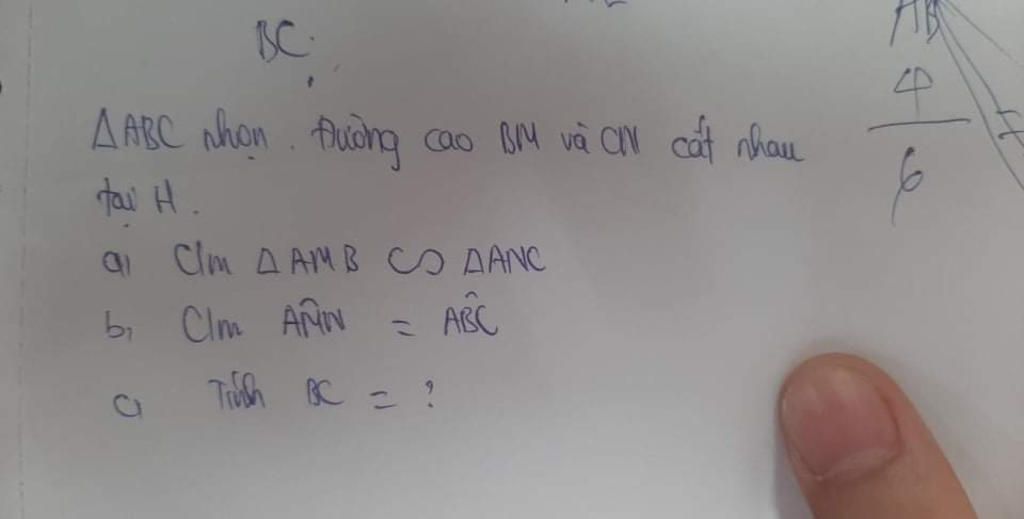 BC.
AB
4
6
ΔABC nhọn. Đường cao BM và CN cắt nhau
tại H.
a, C/m ΔAMB ∽ ΔANC
b, C/m AM̂N = AB̂C
c, Tính BC = ?